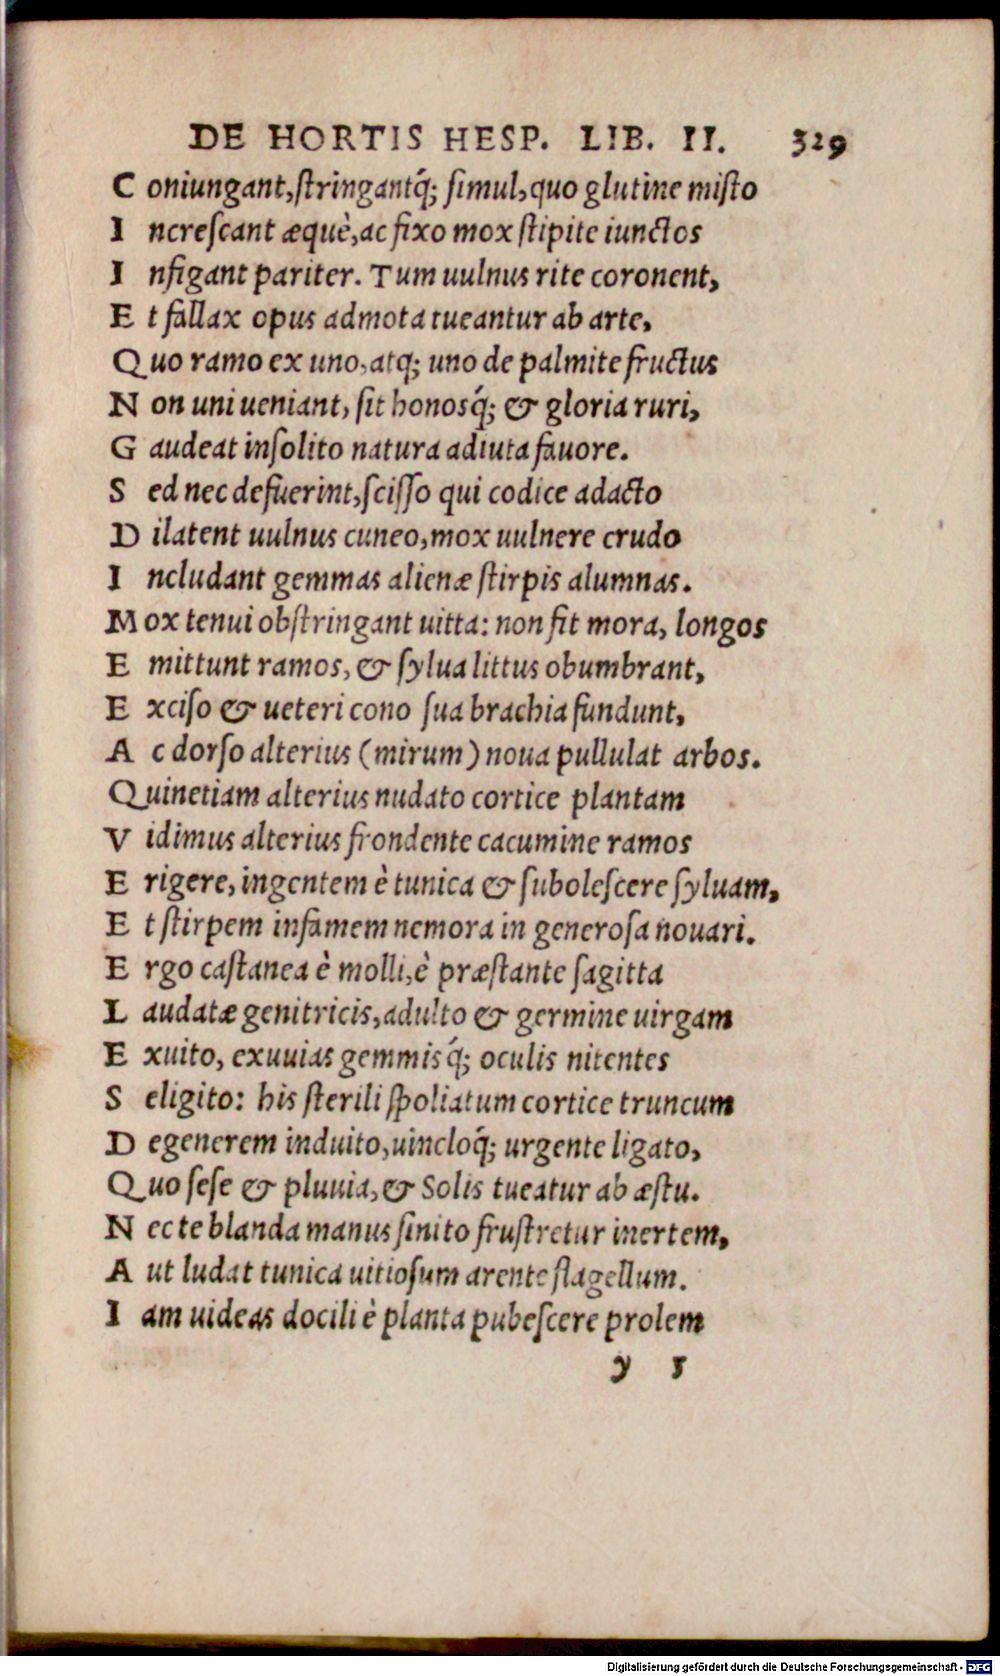 DE HORTIS HESP. LIB. II. 329
C oniungant,ſtringantq́; ſimul,quo glutine miſto
I ncreſcant æquè,ac fixo mox ſtipite iunctos
I nfigant pariter. Tum uulnus rite coronent,
E t fallax opus admota tueantur ab arte,
Q uo ramo ex uno,atq; uno de palmite fructus
N on uni ueniant, ſit honosq́; & gloria ruri,
G audeat inſolito natura adiuta fauore.
S ed nec defuerint,ſciſſo qui codice adacto
D ilatent uulnus cuneo,mox uulnere crudo
I ncludant gemmas alienæ ſtirpis alumnas.
M ox tenui obſtringant uitta: non fit mora, longos
E mittunt ramos, & ſylua littus obumbrant,
E xciſo & ueteri cono ſua brachia fundunt,
A c dorſo alterius (mirum) noua pullulat arbos.
Q uinetiam alterius nudato cortice plantam
V idimus alterius frondente cacumine ramos
E rigere, ingentem è tunica & ſuboleſcere ſyluam,
E t ſtirpem infamem nemora in generoſa nouari.
E rgo caſtanea è molli,è præſtante ſagitta
L audatæ genitricis,adulto & germine uirgam
E xuito, exuuias gemmisq́; oculis nitentes
S eligito: his ſterili ſpoliatum cortice truncum
D egenerem induito,uincloq́; urgente ligato,
Q uo ſeſe & pluuia,& Solis tueatur ab æſtu.
N ec te blanda manus ſinito fruſtretur inertem,
A ut ludat tunica uitioſum arente flagellum.
I am uideas docili è planta pubeſcere prolem
y 5
Digitalisierung gefördert durch die Deutsche Forschungsgemeinschaft - DFG